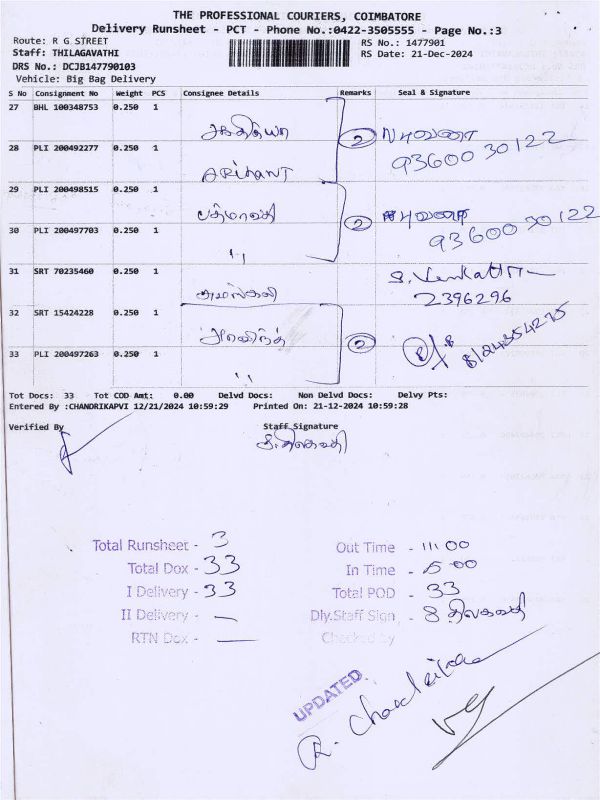 THE PROFESSIONAL COURIERS, COIMBATORE
Delivery Runsheet - PCT - Phone No.:0422-3505555 - Page No.:3
Route: R G STREET RS No.: 1477901
Staff: THILAGAVATHI RS Date: 21-Dec-2024
DRS No.: DCJB147790103
Vehicle: Big Bag Delivery
S No Consignment No Weight PCS Consignee Details Remarks Seal & Signature
27 BHL 100348753 0.250 1
2 93600 30122
28 PLI 200492277 0.250 1 ARIHANT
29 PLI 200498515 0.250 1 பத்மாவதி
2 93600 30122
30 PLI 200497703 0.250 1 "
31 SRT 70235460 0.250 1
2396296
32 SRT 15424228 0.250 1 அரவிந்த்
2 8124354275
33 PLI 200497263 0.250 1 "
Tot Docs: 33 Tot COD Amt: 0.00 Delvd Docs: Non Delvd Docs: Delvy Pts:
Entered By :CHANDRIKAPVI 12/21/2024 10:59:29 Printed On: 21-12-2024 10:59:28
Verified By Staff Signature
Total Runsheet - 3 Out Time - 11:00
Total Dox - 33 In Time - 5:00
I Delivery - 33 Total POD - 33
II Delivery - — Dly.Staff Sign -
RTN Dox - — Checked by
UPDATED
R. Chandrika